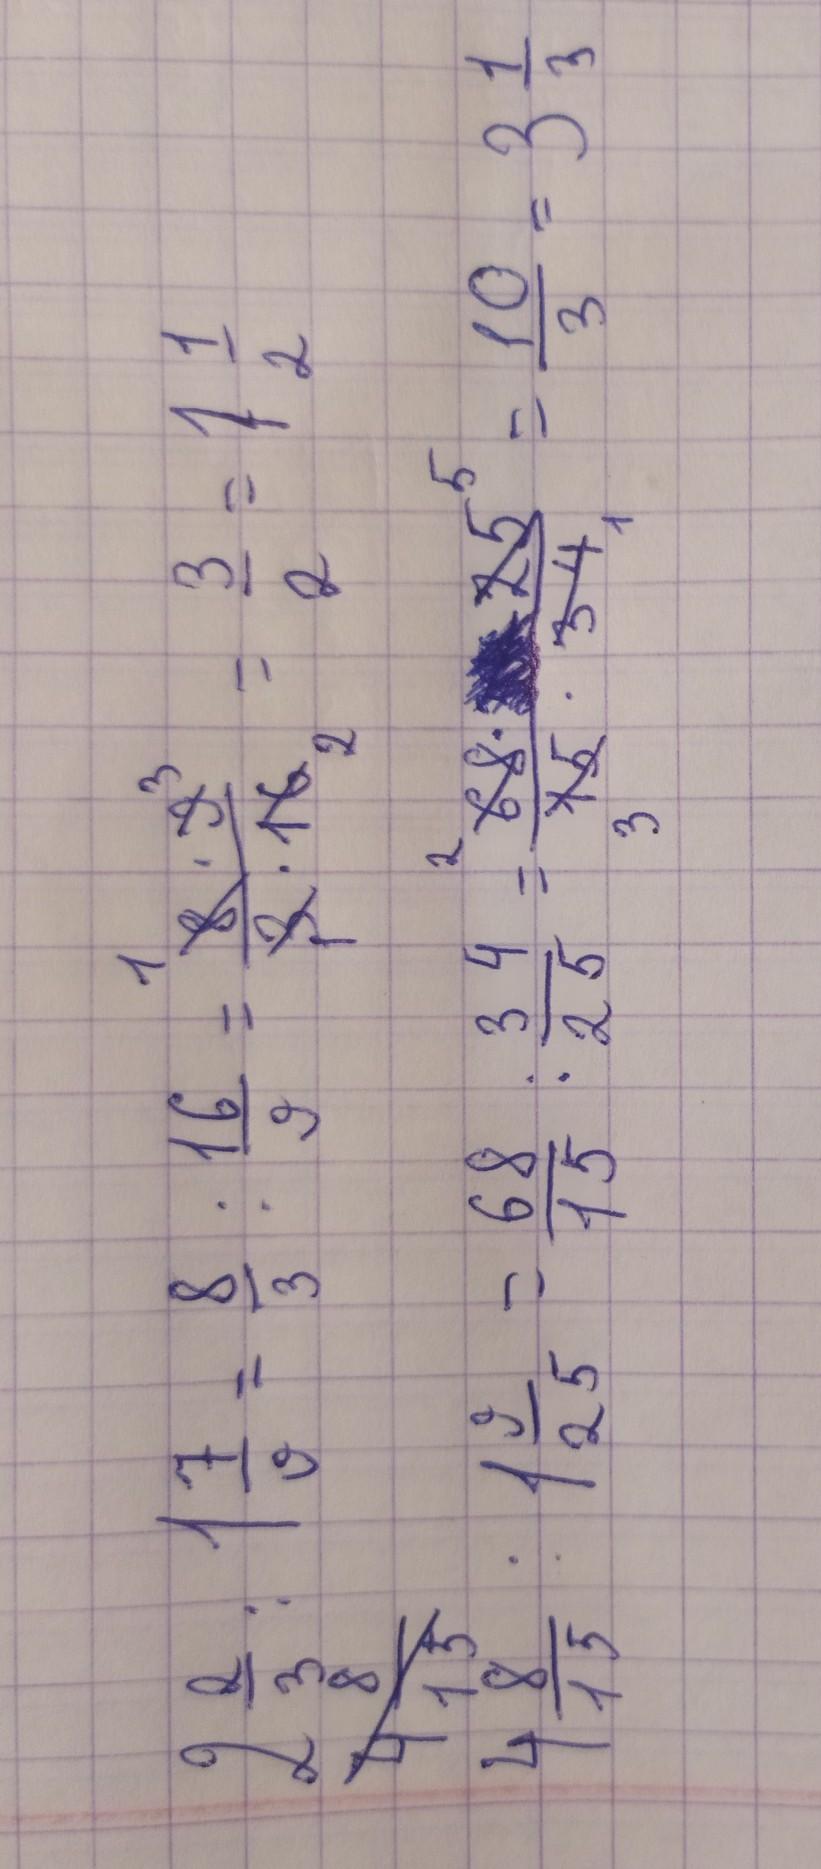 2 2/3 : 1 7/9 = 8/3 : 16/9 = 8·9/3·16 = 3/2 = 1 1/2
4 8/15
4 8/15 : 1 9/25 = 68/15 : 34/25 = 68·25/15·34 = 10/3 = 3 1/3